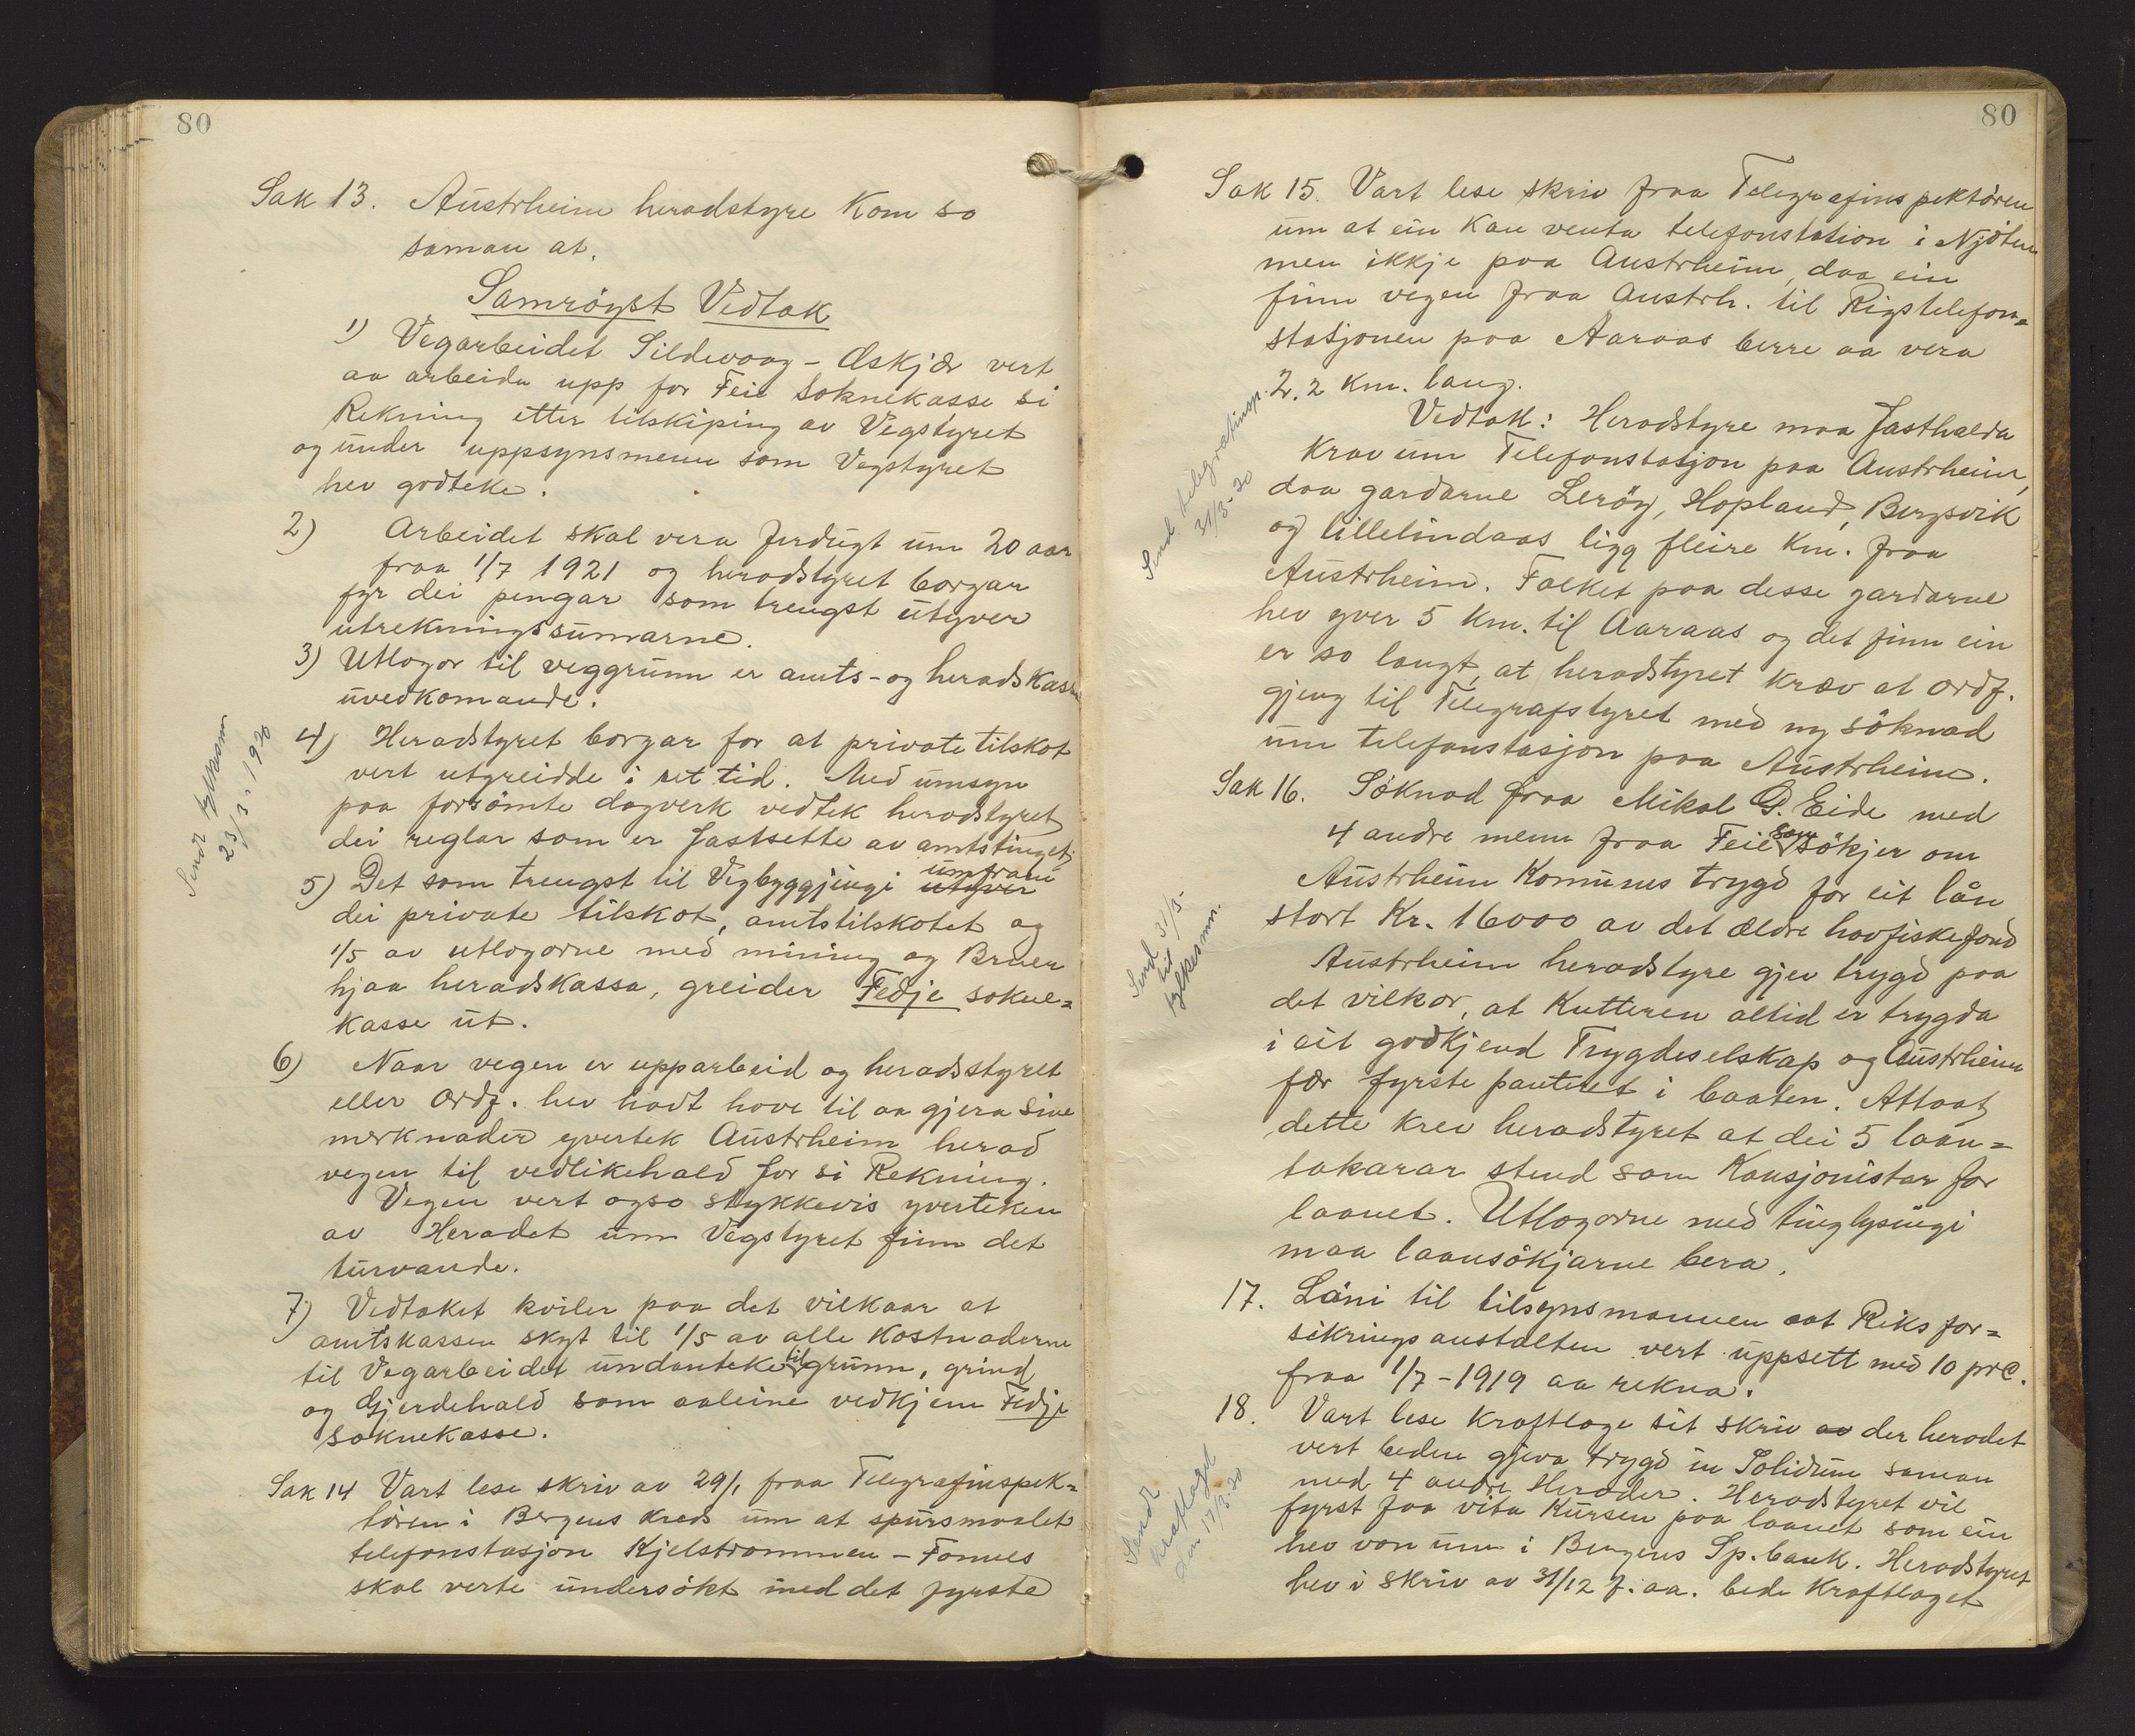 80
Sak 13. Austrheim heradstyre kom so
saman at.
Samröyst Vedtak
1) Vegarbeidet Sildevaag - Æskjær vert
aa arbeida upp for Feie Soknekasse si
Rekning etter tilskiping av Vegstyret
og under uppsynsmenn som Vegstyret
hev godteke.
2) Arbeidet skal vera ferdugt um 20 aar
fraa 1/7 1921 og heradstyret borgar
fyr dei pengar som trengst utyver
utrekningssumarne.
3) Utlogor til veggrunn er amts- og heradskassa
uvedkomande.
4) Heradstyret borgar for at private tilskot
vert utgreidde i ret tid. Med umsyn
paa forsömte dagverk vedtek heradstyret
dei reglar som er fastsette av amtstinget;
5) Det som trengst til Vegbyggjingi utyver umfram
dei private tilskot, amtstilskotet og
1/5 av utlogorne med mining og Bruer
hjaa heradskassa, greider Fedje sokne=
kasse ut.
Sendt fylkesm.
23/3-1920
6) Naar vegen er upparbeid og heradsstyret
eller Ordf. hev havt hove til aa gjera sine
merknader yvertek Austrheim herad
vegen til vedlikehald for si Rekning.
Vegen vert ogso stykkevis yverteken
av Heradet um Vegstyret finn det
turvande.
7) Vedtaket kviler paa det vilkaar at
amtskassen skyt til 1/5 av alle Kostnaderne
til Vegarbeidet undanteke til grunn, grind
og Gjerdehald som aaleine vedkjem Fedje
Soknekasse.
Sak 14 Vart lese skriv av 29/1 fraa Telegrafinspek=
tören i Bergens Kreds um at spursmaalet
telefonstasjon Kjelstraumen - Fonnes
skal verte undersökt med det fyrste
80
Sak 15. Vart lese skriv fraa Telegrafinspektören
um at ein kan venta telefonstation i Njöten
men ikkje paa Austrheim, daa ein
finn vegen fraa Austrh. til Rigstelefon=
stasjonen paa Aaraas berre aa vera
2,2 km. lang.
Vedtak: Heradstyre maa fasthalda
Krav um Telefonstasjon paa Austrheim,
daa gardarne Leröy, Hopland, Bergsvik
og Lillelindaas ligg fleire km. fraa
Austrheim. Folket paa desse gardarne
hev yver 5 km. til Aaraas og det finn ein
er so langt, at heradstyret kræv at ordf.
gjeng til Telegrafstyret med ny söknad
um telefonstasjon paa Austrheim.
Send telegrafinsp.
31/3-20
Sak 16. Söknad fraa Mikal G. Eide med
4 andre menn fraa Feie som sökjer om
Austrheim Komunes trygd for eit lån
stort Kr. 16000 av det ældre havfiskefond
Austrheim heradstyre gjev trygd paa
det vilkor, at Kutteren altid er trygda
i eit godkjend Trygdeselskap og Austrheim
fær fyrste panteret i baaten. Attaat
dette krev heradstyret at dei 5 laan=
takarar stend som Kausjonistar for
laanet. Utlogorne med tinglysingi
maa laansökjarne bera.
Send 31/3-
til
fylkesm.
17. Löni til tilsynsmannen aat Riksfor=
sikringsanstalten vert uppsett med 10 prc.
fraa 1/7-1919 aa rekna.
18. Vart lese Kraftlage sit skriv av der heradet
vert beden gjeva trygd in Solidum saman
med 4 andre Herader. Heradstyret vil
fyrst faa vita Kursen paa laanet som ein
hev von um i Bergens Sp.bank. Heradstyret
hev i skriv av 31/12 f. aa. bede Kraftlaget
Sendt
kraftlaget
den 17/3-20